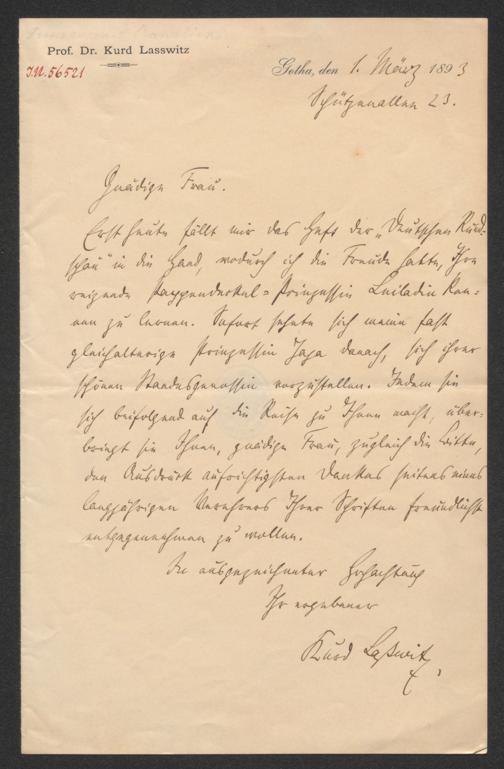 Prof. Dr. Kurd Lasswitz
J.N. 56521
Gotha, den 1. März 1893
Schützenallee 23.
Gnädige Frau.
Erst heute fällt mir das Heft der „Deutschen Rund-
schau" in die Hand, wodurch ich die Freude hatte, Ihre
reizende Pappendeckel-Prinzessin Leiladin ken-
nen zu lernen. Sofort sehnte sich meine fast
gleichalterige Prinzessin Jaja danach, sich ihrer
schönen Standesgenossin vorzustellen. Indem sie
sich beifolgend auf die Reise zu Ihnen macht, über-
bringt sie Ihnen, gnädige Frau, zugleich die Bitte,
den Ausdruck aufrichtigsten Dankes seitens eines
langjährigen Verehrers Ihrer Schriften freundlichst
entgegennehmen zu wollen.
In ausgezeichneter Hochachtung
Ihr ergebener
Kurd Laßwitz